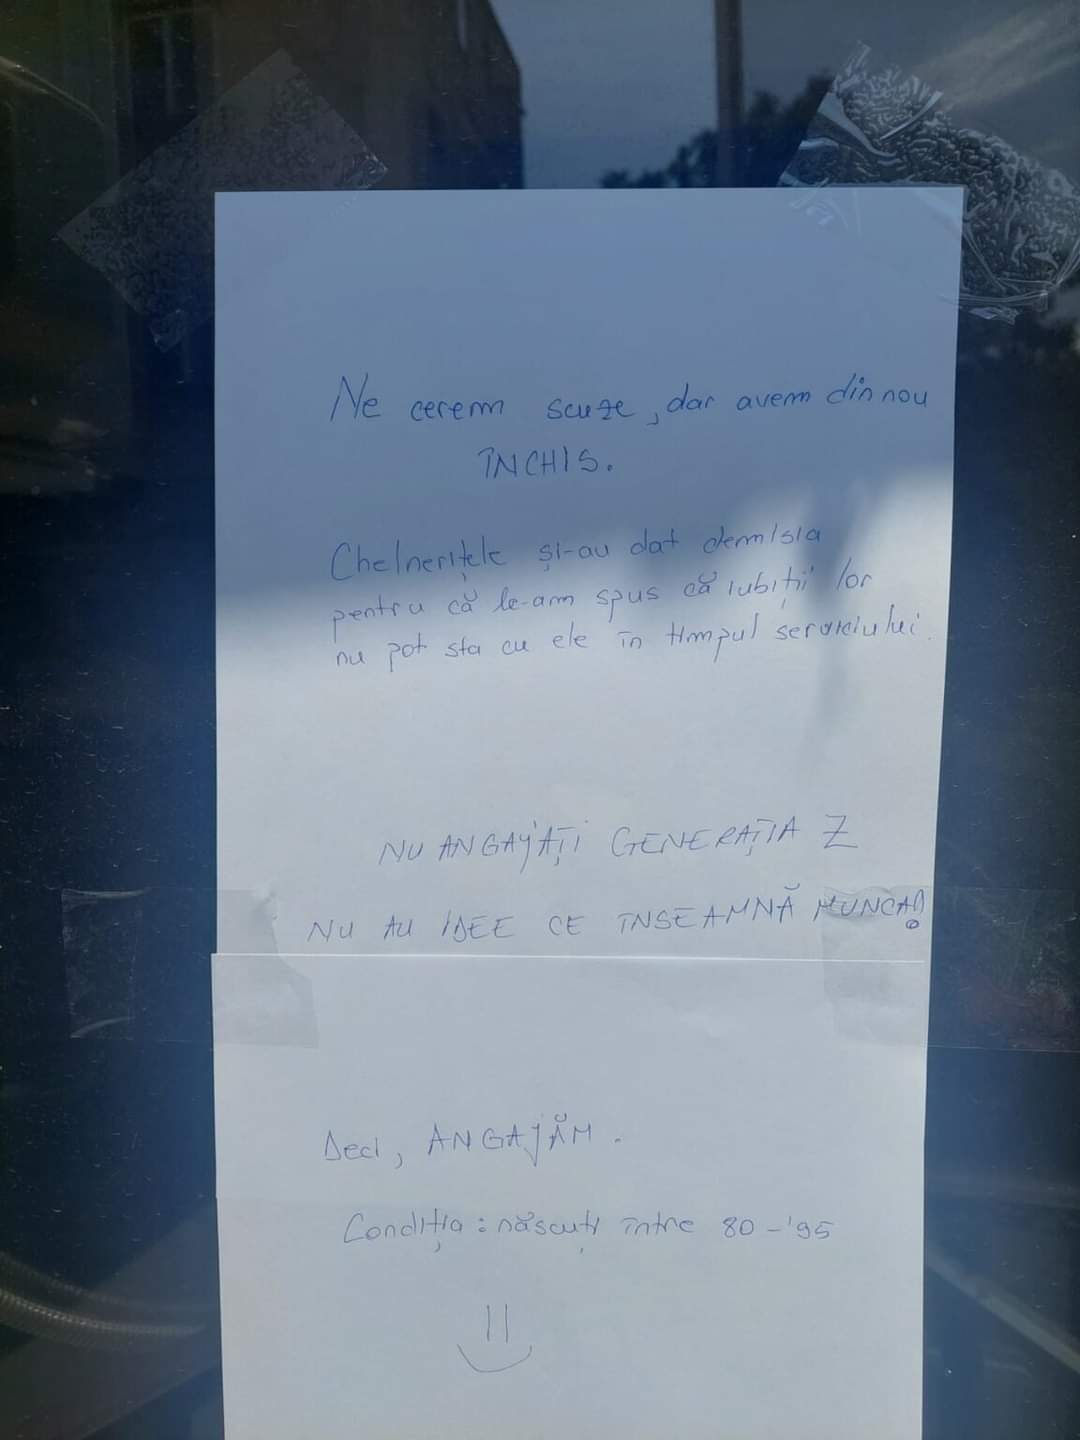 Ne cerem scuze, dar avem din nou
ÎNCHIS.
Chelnerițele și-au dat demisia
pentru că le-am spus că iubiții lor
nu pot sta cu ele în timpul serviciului.
NU ANGAJAȚI GENERAȚIA Z
NU AU IDEE CE ÎNSEAMNĂ MUNCA!
Deci, ANGAJĂM.
Condiția: născuți între 80-'95